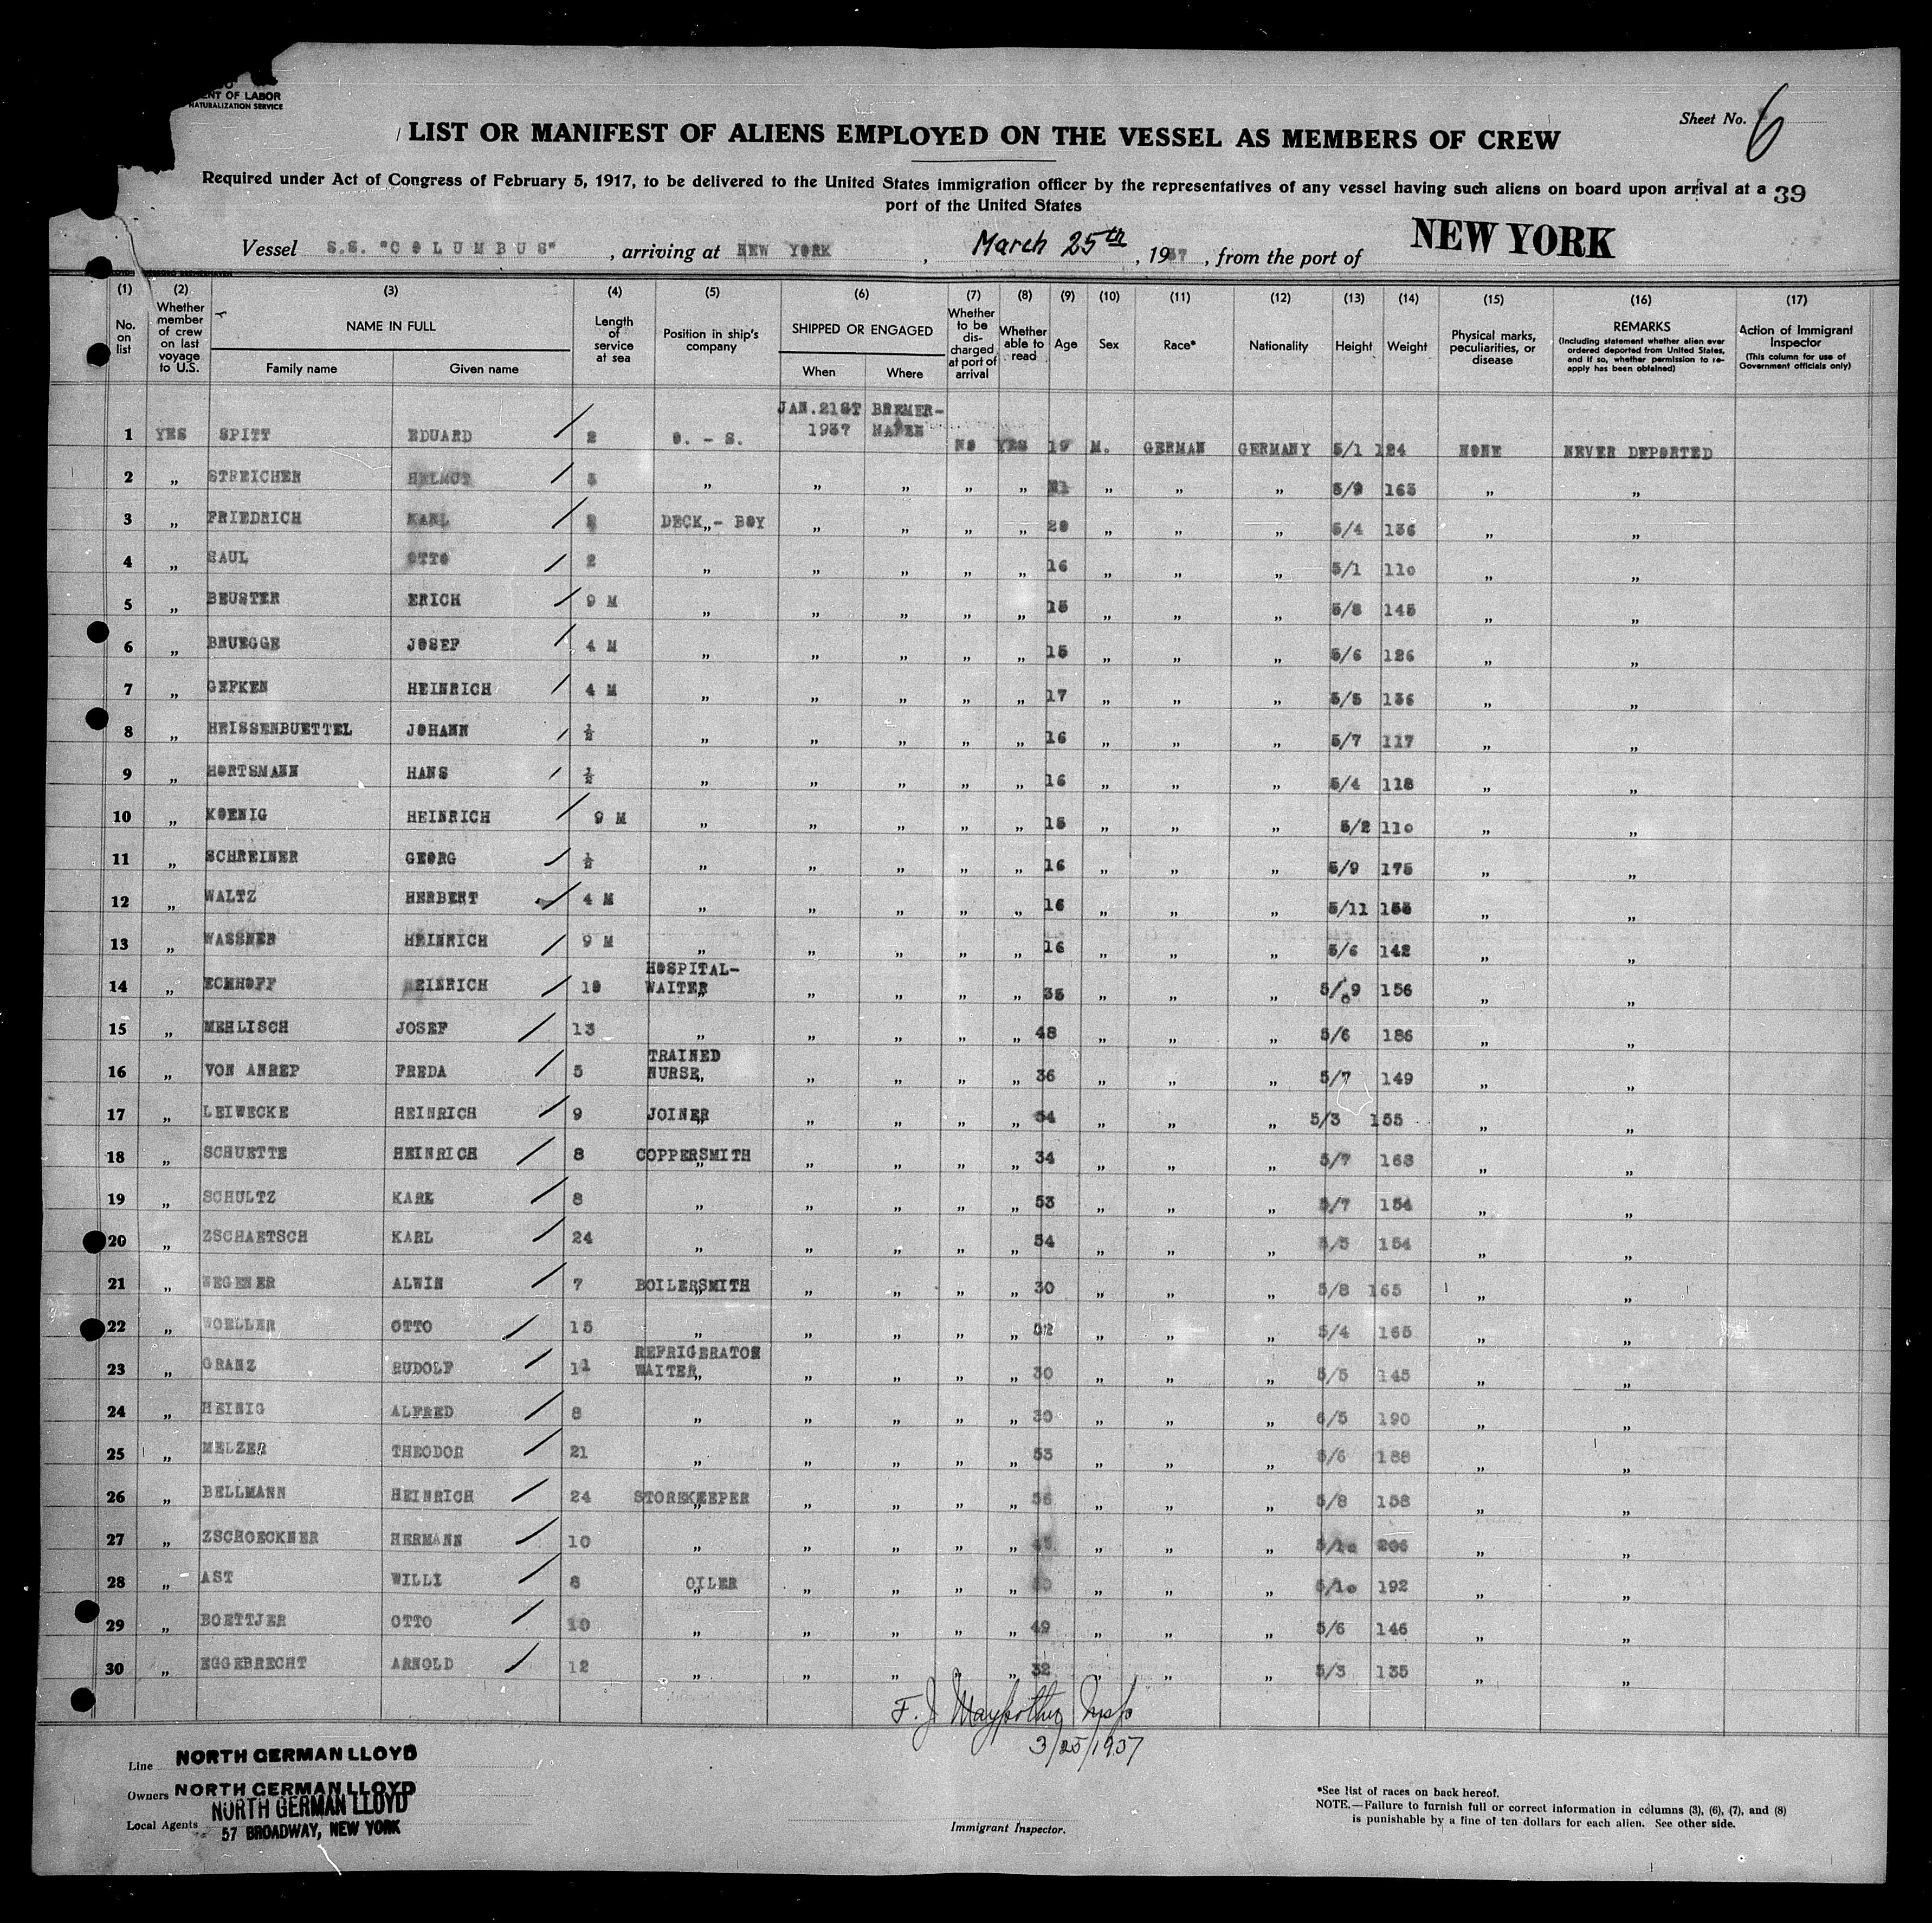 ENT OF LABOR
NATURALIZATION SERVICE
Sheet No. 6
LIST OR MANIFEST OF ALIENS EMPLOYED ON THE VESSEL AS MEMBERS OF CREW
Required under Act of Congress of February 5, 1917, to be delivered to the United States immigration officer by the representatives of any vessel having such aliens on board upon arrival at a 39
port of the United States
Vessel S.S. "COLUMBUS", arriving at NEW YORK, March 25th, 1937, from the port of NEW YORK
(1) (2) (3) (4) (5) (6) (7) (8) (9) (10) (11) (12) (13) (14) (15) (16) (17)
No. on list
Whether member of crew on last voyage to U.S.
NAME IN FULL
Family name Given name
Length of service at sea
Position in ship's company
SHIPPED OR ENGAGED
When Where
Whether to be discharged at port of arrival
Whether able to read
Age
Sex
Race*
Nationality
Height
Weight
Physical marks, peculiarities, or disease
REMARKS
(Including statement whether alien ever ordered deported from United States, and if so, whether permission to re-apply has been obtained)
Action of Immigrant Inspector
(This column for use of Government officials only)
JAN.21ST BREMER-
1 YES SPITT EDUARD / 2 O. - S. 1937 HAFEN NO YES 19 M. GERMAN GERMANY 5/1 124 NONE NEVER DEPORTED
2 „ STREICHER HELMUT / „ „ „ „ „ „ „ „ 5/9 163 „ „
3 „ FRIEDRICH KARL / DECK „ - BOY „ „ „ „ 20 „ „ „ 5/4 136 „ „
4 „ SAUL OTTO / 2 „ „ „ „ „ 16 „ „ „ 5/1 110 „ „
5 „ BEUSTER ERICH / 9 M „ „ „ „ „ 15 „ „ „ 5/8 145 „ „
6 „ BRUEGGE JOSEF / 4 M „ „ „ „ „ 15 „ „ „ 5/6 126 „ „
7 „ GEFKEN HEINRICH / 4 M „ „ „ „ „ 17 „ „ „ 5/5 136 „ „
8 „ HEISSENBUETTEL JOHANN / ½ „ „ „ „ „ 16 „ „ „ 5/7 117 „ „
9 „ HORTSMANN HANS / ½ „ „ „ „ „ 16 „ „ „ 5/4 118 „ „
10 „ KOENIG HEINRICH / 9 M „ „ „ „ „ 15 „ „ „ 5/2 110 „ „
11 „ SCHREINER GEORG / ½ „ „ „ „ „ 16 „ „ „ 5/9 175 „ „
12 „ WALTZ HERBERT / 4 M „ „ „ „ „ 16 „ „ „ 5/11 „ „
13 „ WASSNER HEINRICH / 9 M „ „ „ „ „ 16 „ „ „ 5/6 142 „ „
HOSPITAL-
14 „ HEINRICH / 10 WAITER „ „ „ „ „ 35 „ „ „ 5/9 156 „ „
15 „ MEHLISCH JOSEF / 13 „ „ „ „ „ 48 „ „ „ 5/6 186 „ „
TRAINED
16 „ VON ANREP FREDA / 5 NURSE „ „ „ „ „ 36 „ „ „ 5/7 149 „ „
17 „ LEIWECKE HEINRICH / 9 JOINER „ „ „ „ „ 54 „ „ „ 5/3 155 „ „
18 „ SCHUETTE HEINRICH / 8 COPPERSMITH „ „ „ „ „ 34 „ „ „ 5/7 168 „ „
19 „ SCHULTZ KARL / 8 „ „ „ „ „ 53 „ „ „ 5/7 154 „ „
20 „ ZSCHAETSCH KARL / 24 „ „ „ „ „ 54 „ „ „ 5/5 154 „ „
21 „ WEGENER ALWIN / 7 BOILERSMITH „ „ „ „ „ 30 „ „ „ 5/8 165 „ „
22 „ WOELLER OTTO / 15 „ „ „ „ „ „ „ „ 5/4 165 „ „
REFRIGERATOR
23 „ GRANZ RUDOLF / 11 WAITER „ „ „ „ „ 30 „ „ „ 5/5 145 „ „
24 „ HEINIG ALFRED / 8 „ „ „ „ „ 30 „ „ „ 6/5 190 „ „
25 „ MELZER THEODOR / 21 „ „ „ „ „ 53 „ „ „ 5/6 188 „ „
26 „ BELLMANN HEINRICH / 24 STOREKEEPER „ „ „ „ „ 56 „ „ „ 5/8 158 „ „
27 „ ZSCHOECKNER HERMANN / 10 „ „ „ „ „ „ „ „ 5/10 206 „ „
28 „ AST WILLI / 8 OILER „ „ „ „ „ „ „ „ 5/10 192 „ „
29 „ BOETTJER OTTO / 10 „ „ „ „ „ 49 „ „ „ 5/6 146 „ „
30 „ EGGEBRECHT ARNOLD / 12 „ „ „ „ „ 32 „ „ „ 5/3 135 „ „
F. J. Insp
3/25/1937
Line NORTH GERMAN LLOYD
Owners NORTH GERMAN LLOYD
NORTH GERMAN LLOYD
Local Agents 57 BROADWAY, NEW YORK
Immigrant Inspector.
*See list of races on back hereof.
NOTE.—Failure to furnish full or correct information in columns (3), (6), (7), and (8)
is punishable by a fine of ten dollars for each alien. See other side.